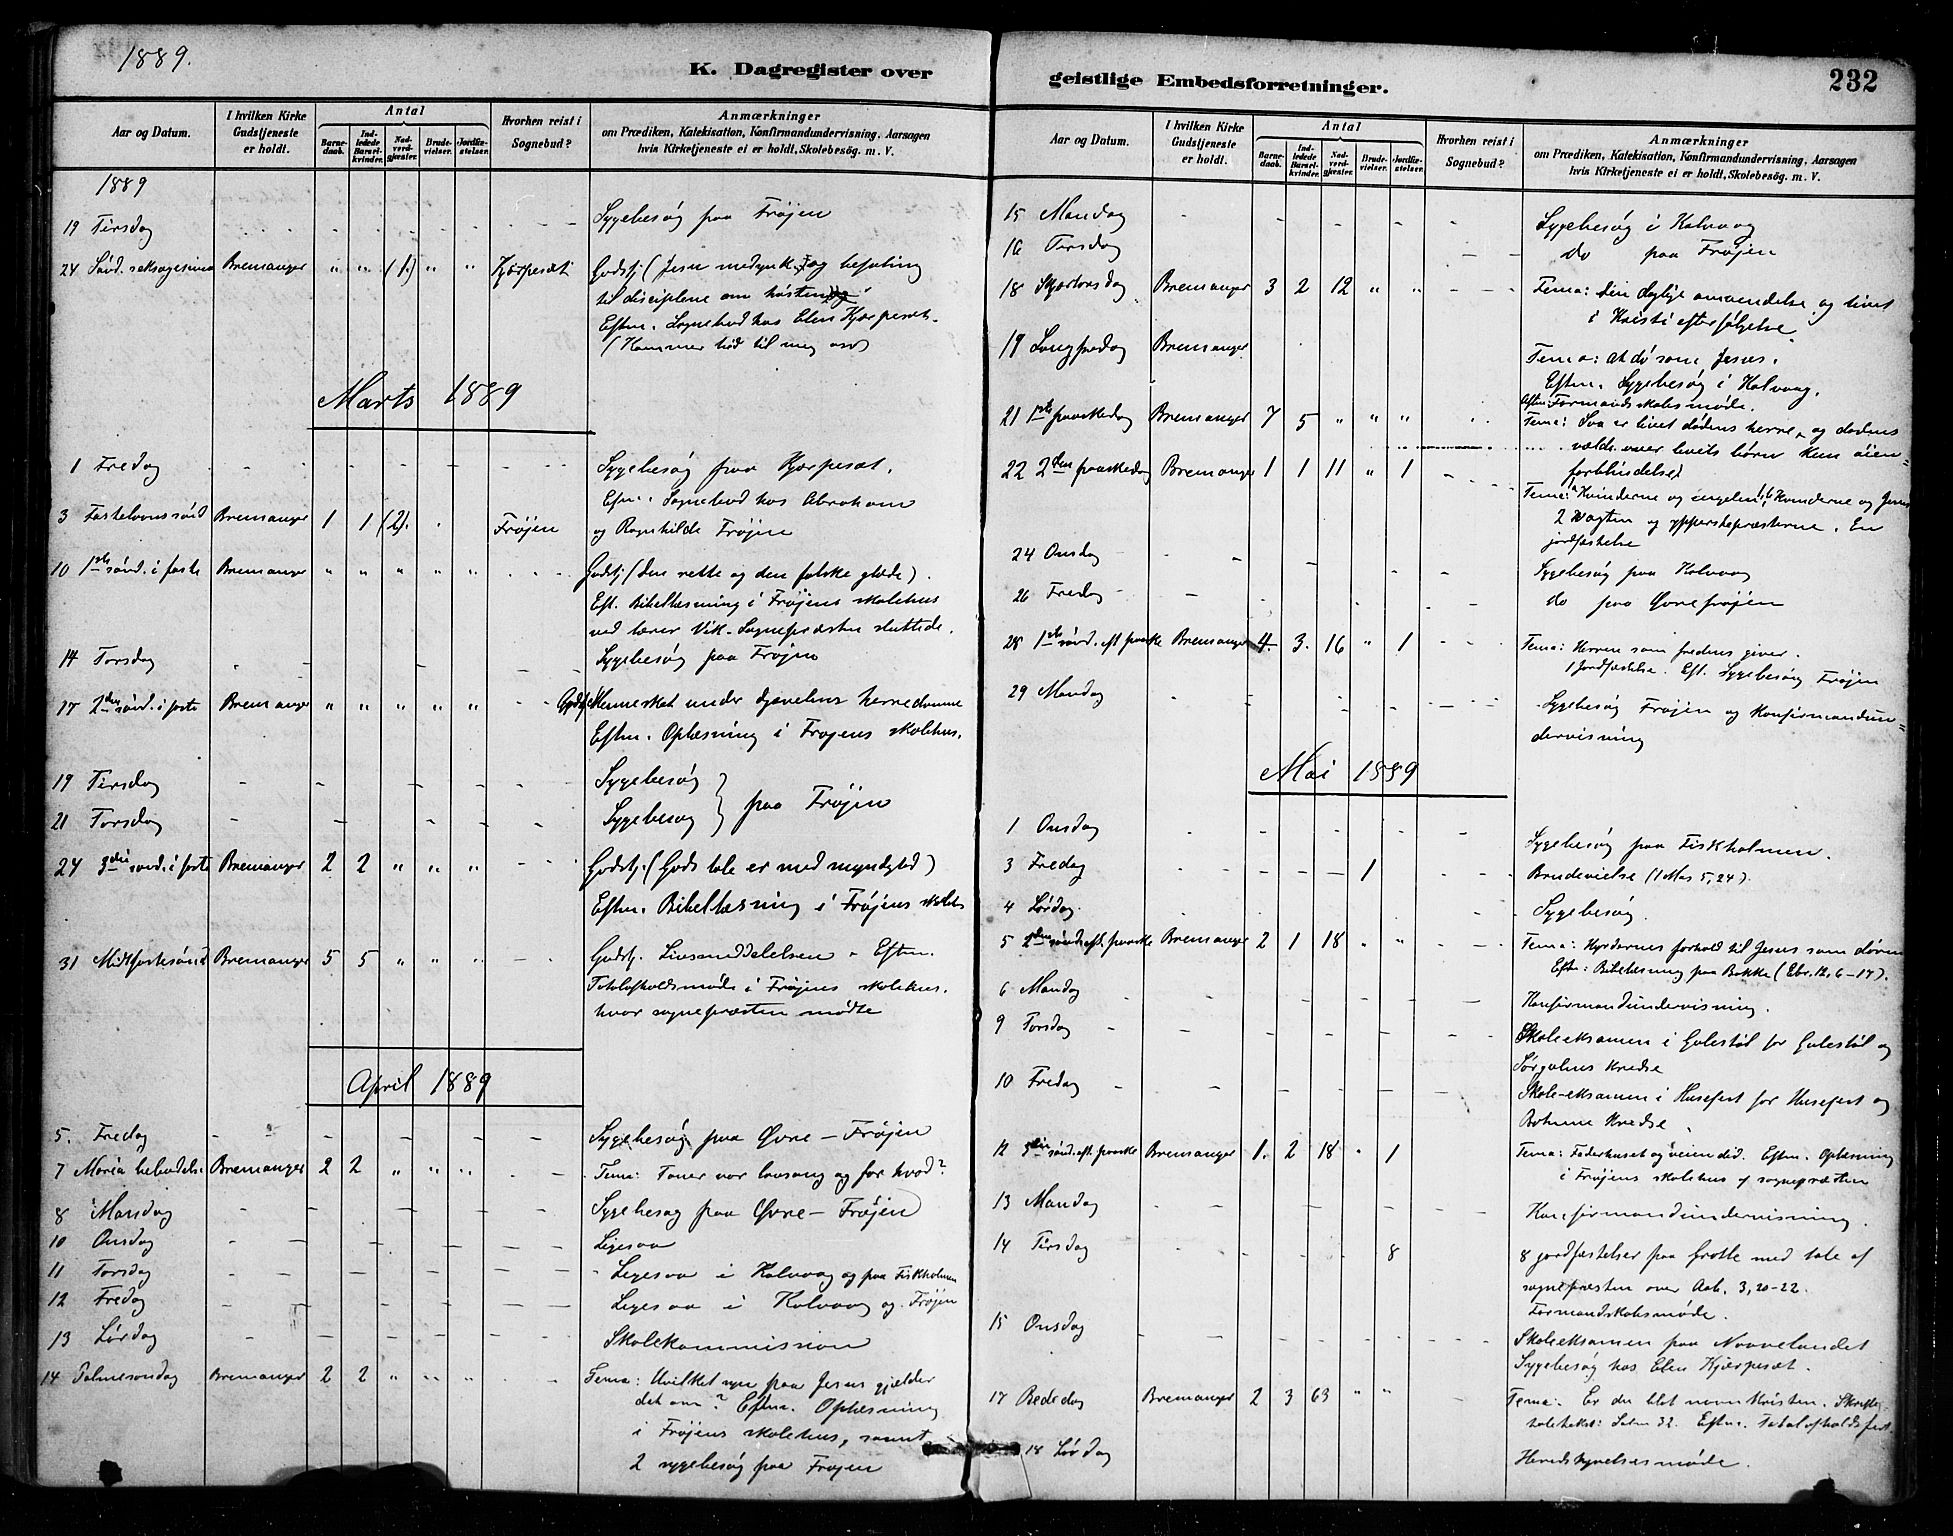 1889.
K. Dagregister over
Aar og Datum.
I hvilken Kirke Gudstjeneste er holdt.
Antal
Barnedaab.
Indledede Barselkvinder.
Nadverdgjester.
Brudevielser.
Jordfæstelser.
Hvorhen reist i Sognebud?
Anmærkninger
om Prædiken, Katekisation, Konfirmandundervisning, Aarsagen
hvis Kirketjeneste ei er holdt, Skolebesög. m. V.
1889
19 Tirsdag Sygebesøg paa Frøjen
24 Sønd. seksagesima Bremanger " " (1.) " " Kjærpesæt Gudstj (Jesu medynk og befaling
til disciplene om høsten
Eftm. Sognebud hos Elen Kjærpesæt.
(Kommer hid til mig osv)
Marts 1889
1 Fredag Sygebesøg paa Kjærpesæt.
Eftm. Sognebud hos Abraham
3 Fastelavnssønd Bremanger 1 1 (2). Frøjen og Ragnhilde Frøjen
10 1ste sønd. i faste Bremanger " " " " " Gudstj (den rette og den falske glæde).
Eft. Bibellæsning i Frøjens skolehus
ved lærer Vik. Sognepræsten sluttede.
14 Torsdag Sygebesøg paa Frøjen
17 2den sønd. i faste Bremanger " " " " " Gudstj Mennesket under djævelens herredømme
Eftm. Oplæsning i Frøjens skolehus.
19 Tirsdag Sygebesøg
21 Torsdag Sygebesøg } paa Frøjen
24 3die sønd. i faste Bremanger 2 2 " " " Gudstj. (Guds tale er med myndighed)
Eftm. Bibellæsning i Frøjens skolehus
31 Midtfastesønd Bremanger 5 5 " " " Gudstj. Livsmeddelelsen. Eftm.
Totalafholdsmøde i Frøjens skolehus.
hvor sognepræsten mødte
April 1889
5. Fredag Sygebesøg paa Øvre-Frøjen
7 Maria bebudelse Bremanger 2 2 " " " Tema: Toner vor lovsang og for hvad?
8 Mandag Sygebesøg paa Øvre-Frøjen
10 Onsdag Ligesaa
11 Torsdag Ligesaa i Kalvaag og paa Fiskholmen
12 Fredag Ligesaa i Kalvaag og Frøjen
13 Lørdag Skolekommission
14 Palmesøndag Bremanger 2 2 " " " Tema: Hvilket syn paa Jesus gjælder
det om? Eftm. Oplæsning
i Frøjens skolehus, samt
2 sygebesøg paa Frøjen
geistlige Embedsforretninger.
232
Aar og Datum.
I hvilken Kirke Gudstjeneste er holdt.
Antal
Barnedaab.
Indledede Barselkvinder.
Nadverdgjester.
Brudevielser.
Jordfæstelser.
Hvorhen reist i Sognebud?
Anmærkninger
om Prædiken, Katekisation, Konfirmandundervisning, Aarsagen
hvis Kirketjeneste ei er holdt, Skolebesög. m. V.
15 Mandag Sygebesøg i Kalvaag
16 Tirsdag do paa Frøjen
18 Skjærtorsdag Bremanger 3 2 12 " " Tema: Den daglige omvendelse og livet
i Kristi efterfølgelse
19 Langfredag Bremanger Tema: At dø som Jesus.
Eftm. Sygebesøg i Kalvaag.
Eftm. Formandskabsmøde.
21 1ste paaskedag Bremanger 7 5 " " " Tema: Saa er livet dødens herre, og dødens
vælde over livets børn kun øien=
forblindelse)
22 2den paaskedag Bremanger 1 1 11 " 1 Tema: 1 a Kvinderne og engelen, b Kvinderne og Jesus
2 Vagten og ypperstepræsterne. En
jordfæstelse
24 Onsdag Sygebesøg paa Kalvaag
26 Fredag do paa Øvrefrøjen
28 1ste sønd. eft paaske Bremanger 4. 3. 16 " 1 Tema: Herren som fredens giver.
1 Jordfæstelse. Eft. Sygebesøg Frøjen
29 Mandag Sygebesøg Frøjen og Konfirmandun=
dervisning
Mai 1889
1 Onsdag Sygebesøg paa Fiskholmen.
3 Fredag 1 Brudevielse (1 Mos 5,24).
4 Lørdag Sygebesøg.
5 2den sønd. eft. paaske Bremanger 2 1 18 " " Tema: Hyrdernes forhold til Jesus som døren
Eftm: Bibellæsning paa Bakke (Ebr. 12, 6-17).
6 Mandag Konfirmandundervisning.
9 Torsdag Skoleeksamen i Gulestøl for Gulestøl og
Sørgulens Kredse
10 Fredag Skole-eksamen i Husefest for Husefest og
Botnene Kredse.
12 3die sønd. eft. paaske Bremanger 1. 2 18 " 1 Tema: Faderhuset og veien did. Eftm. Oplæsning
i Frøjens skolehus af sognepræsten
13 Mandag Konfirmandundervisning.
14 Tirsdag 8 8 jordfæstelser paa Grotle med tale af
sognepræsten over Aab. 3, 20-22.
Formandskabsmøde.
15 Onsdag Skoleeksamen paa Novelandet
Sygebesøg hos Elen Kjærpesæt.
17 Bededag Bremanger 2 3 63 " " Tema: Er du blot navnkristen. Skrifte
taletekst: Salm 32. Eftm. Totalafholdsfest.
18 Lørdag Heredstyrelsesmøde.